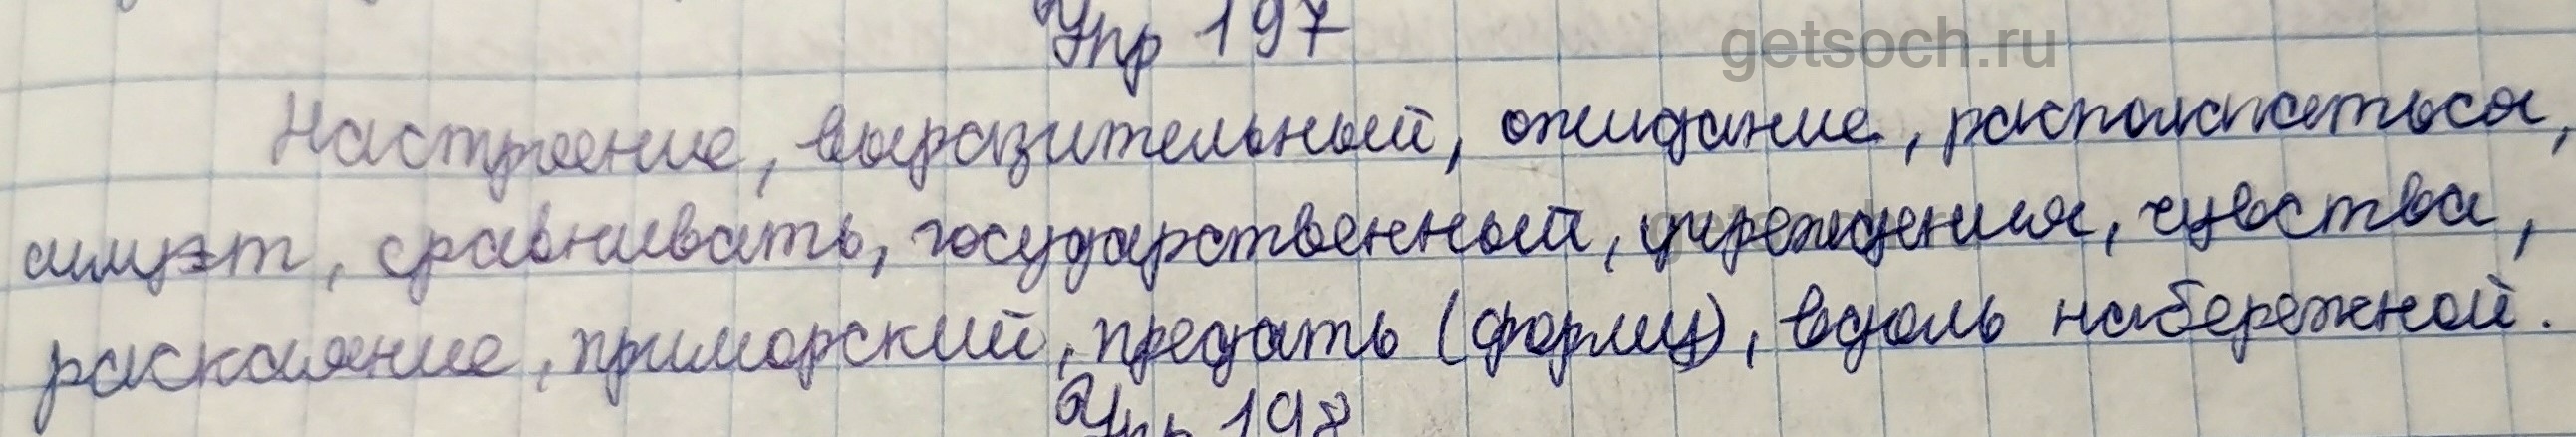 Упр 197
getsoch.ru
Настроение, выразительный, ожидание, располагаться,
силуэт, сравнивать, государственный, учреждения, чувства,
раскаяние, приморский, предать (форму), вдоль набережной.
Упр 198